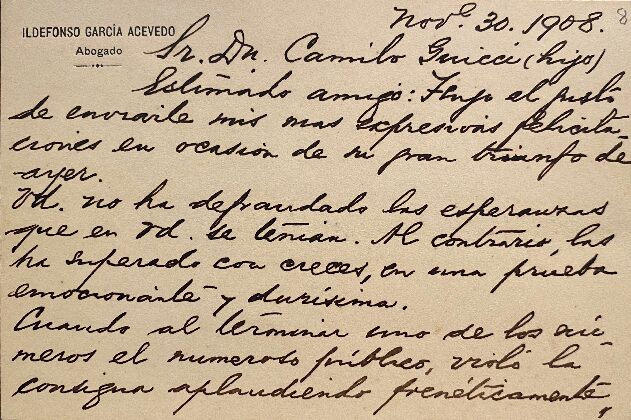 8
ILDEFONSO GARCÍA ACEVEDO
Abogado
Nov.e 30. 1908.
Sr. Dn. Camilo Giucci (hijo)
Estimado amigo: Tengo el gusto
de enviarle mis mas expresivas felicita-
ciones en ocasion de su gran triunfo de
ayer.
Vd. no ha defraudado las esperanzas
que en Vd. se tenian. Al contrario, las
ha superado con creces, en una prueba
emocionante y durísima.
Cuando al terminar uno de los nú-
meros el numeroso público, violó la
consigna aplaudiendo frenéticamente,